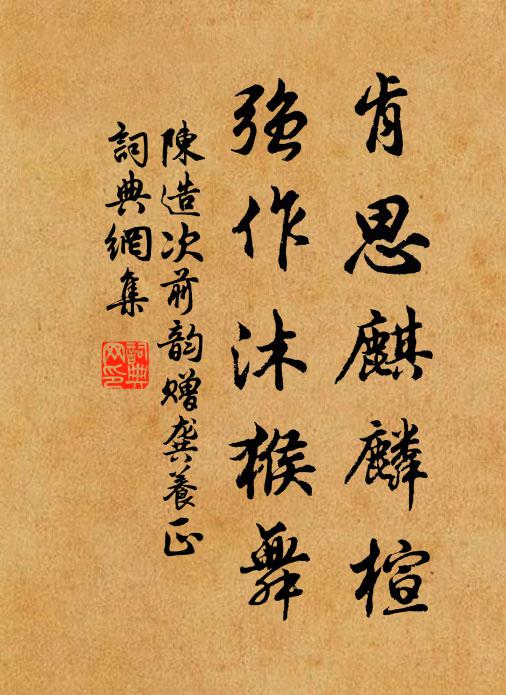 肯思麒麟楦
强作沐猴舞
陳造次前韵贈龔養正
詞典網集
詞典網印